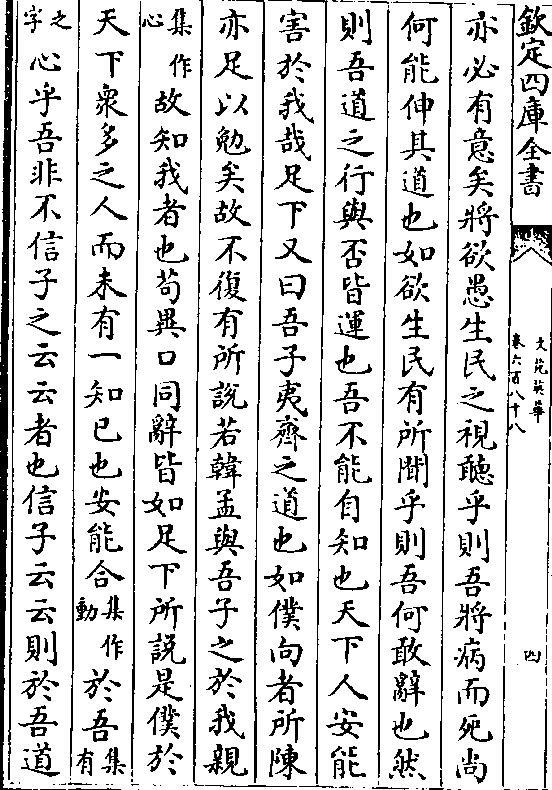 欽定四庫全書
文苑英華
卷六百八十八
四
亦必有意矣將欲愚生民之視聽乎則吾將病而死尚
何能伸其道也如欲生民有所聞乎則吾何敢辭也然
則吾道之行與否皆運也吾不能自知也天下人安能
害於我哉足下又曰吾子夷齊之道也如僕向者所陳
亦足以勉矣故不復有所說若韓孟與吾子之於我親
集作心故知我者也苟異口同辭皆如足下所說是僕於
天下衆多之人而未有一知已也安能合集作動於吾集有
之字心乎吾非不信子之云云者也信子云云則於吾道